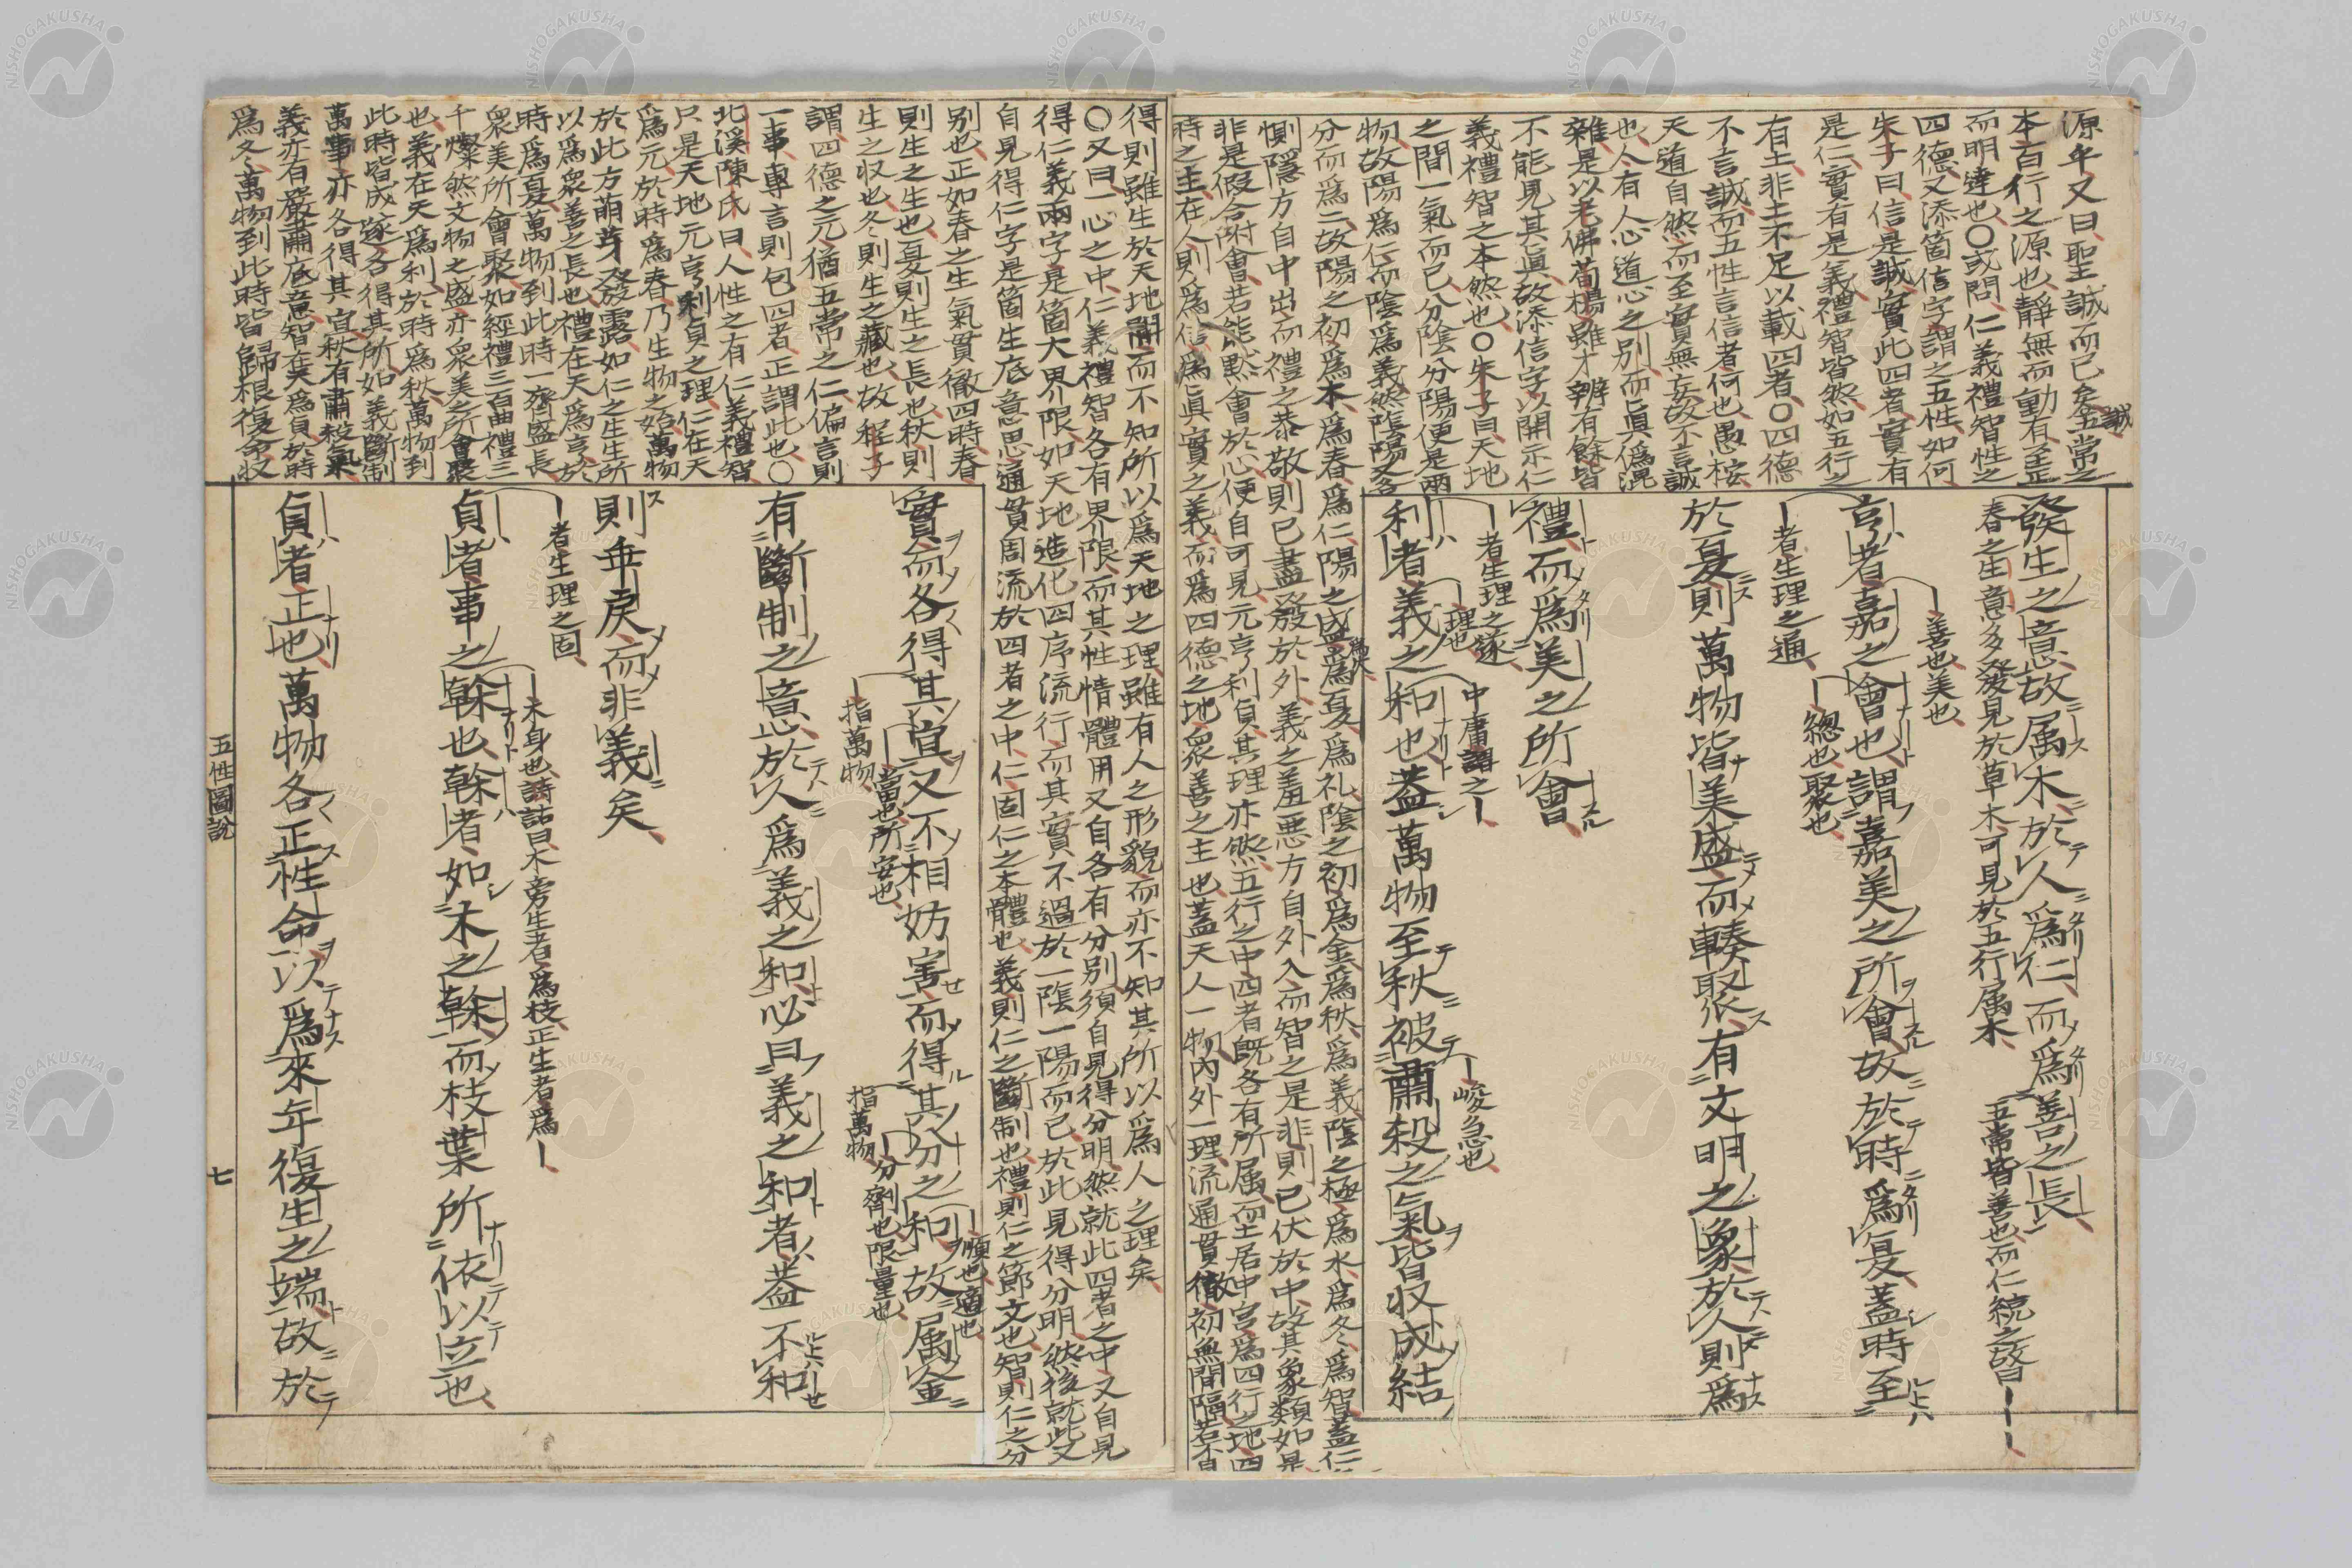 源乎又曰聖誠而已矣誠五常之
本百行之源也靜無而動有至正
而明達也○或問仁義禮智性之
四德又添箇信字謂之五性如何
朱子曰信是誠實此四者實有
是仁實有是義禮智皆然如五行之
有土非土不足以載四者○四德
不言誠而五性言信者何也愚按
天道自然而至實無妄故不言誠
也人有人心道心之別而眞僞混
雜是以老佛荀楊雖才辨有餘皆
不能見其眞故添信字以開示仁
義禮智之本然也○朱子曰天地
之間一氣而已分陰分陽便是兩
物故陽爲仁而陰爲義然陰陽又各
分而爲二故陽之初爲木爲春爲仁陽之盛爲火爲夏爲礼陰之初爲金爲秋爲義陰之極爲水爲冬爲智蓋仁
惻隱方自中出而禮之恭敬則已盡發於外義之羞悪方自外入而智之是非則已伏於中故其象類如是
非是假合附會若能默會於心便自可見元亨利貞其理亦然五行之中四者既各有所属而土居中宮爲四行之地四
時之主在人則爲信爲眞實之義而爲四德之地衆善之主也蓋天人一物内外一理流通貫徹初無間隔若不自
發生之意故属木於人爲仁而爲善之長
春之生意多發見於草木可見於五行属木
五常皆善也而仁統之故曰｜｜｜
｜善也美也
亨者嘉之會也謂嘉美之所會故於時爲夏蓋時至
｜總也聚也
｜者生理之通
於夏則萬物皆美盛而輳聚有文明之象於人則爲
禮而爲美之所會
｜者生理之遂
｜理也
中庸謂之｜
利者義之和也蓋萬物至秋被肅殺之氣皆収成結
｜峻急也
得則雖生於天地間而不知所以爲天地之理雖有人之形貌而亦不知其所以爲人之理矣
○又曰一心之中仁義禮智各有界限而其性情體用又自各有分別須自見得分明然就此四者之中又自見
得仁義兩字是箇大界限如天地造化四序流行而其實不過於一陰一陽而已於此見得分明然後就此又
自見得仁字是箇生底意思通貫周流於四者之中仁固仁之本體也義則仁之斷制也禮則仁之節文也智則仁之分
別也正如春之生氣貫徹四時春
則生之生也夏則生之長也秋則
生之収也冬則生之藏也故程子
謂四德之元猶五常之仁偏言則
一事專言則包四者正謂此也○
北溪陳氏曰人性之有仁義禮智
只是天地元亨利貞之理仁在天
爲元於時爲春乃生物之始萬物
於此方萌芽發露如仁之生生所
以爲衆善之長也禮在天爲亨於
時爲夏萬物到此時一齊盛長
衆美所會聚如經禮三百曲禮三
千燦然文物之盛亦衆美之所會聚
也義在天爲利於時爲秋萬物到
此時皆成遂各得其所如義斷制
萬事亦各得其宜秋有肅殺氣
義亦有嚴肅底意智在天爲貞於時
爲冬萬物到此時皆歸根復命収
實而各得其宜又不相妨害而得其分之和故属金
｜指萬物
｜當也所安也
指萬物
｜分劑也限量也
｜順也適也
有斷制之意於人爲義之和必曰義之和者蓋不和
則乖戾而非義矣
｜者生理之固
｜木身也詩詁曰木旁生者爲枝正生者爲｜
貞者事之榦也榦者如木之榦而枝葉所依以立也
貞者正也萬物各正性命以爲來年復生之端故於
五性圖説
七